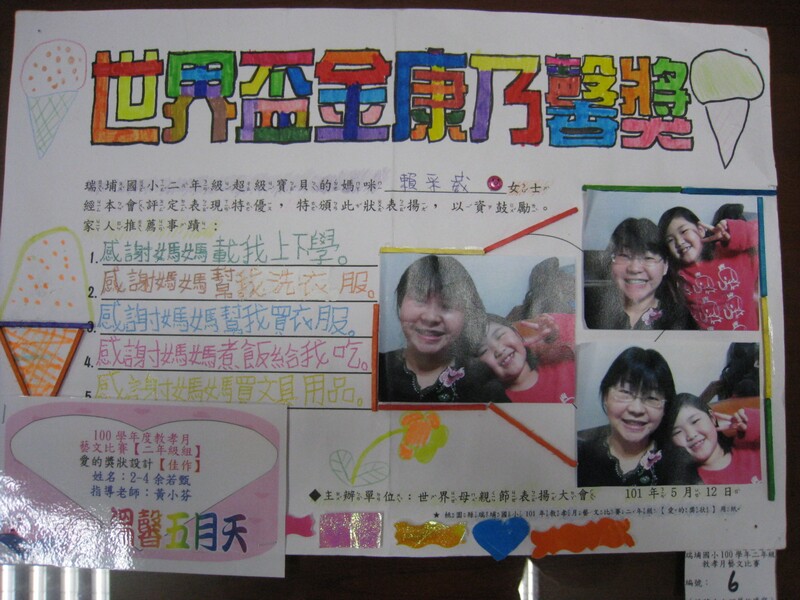 世界盃金康乃馨獎
瑞埔國小二年級超級寶貝的媽咪 賴采葳 女士
經本會評定表現特優，特頒此狀表揚，以資鼓勵。
家人推薦事蹟：
1. 感謝媽媽載我上下學。
2. 感謝媽媽幫我洗衣服。
3. 感謝媽媽幫我買衣服。
4. 感謝媽媽煮飯給我吃。
5. 感謝媽媽買文具用品。
◆主辦單位：世界母親節表揚大會
101年5月12日
100學年度教孝月
藝文比賽【二年級組】
愛的獎狀設計【佳作】
姓名：2-4 余若甄
指導老師：黃小芬
溫馨五月天
瑞埔國小100學年二年級
教孝月藝文比賽
編號： 6